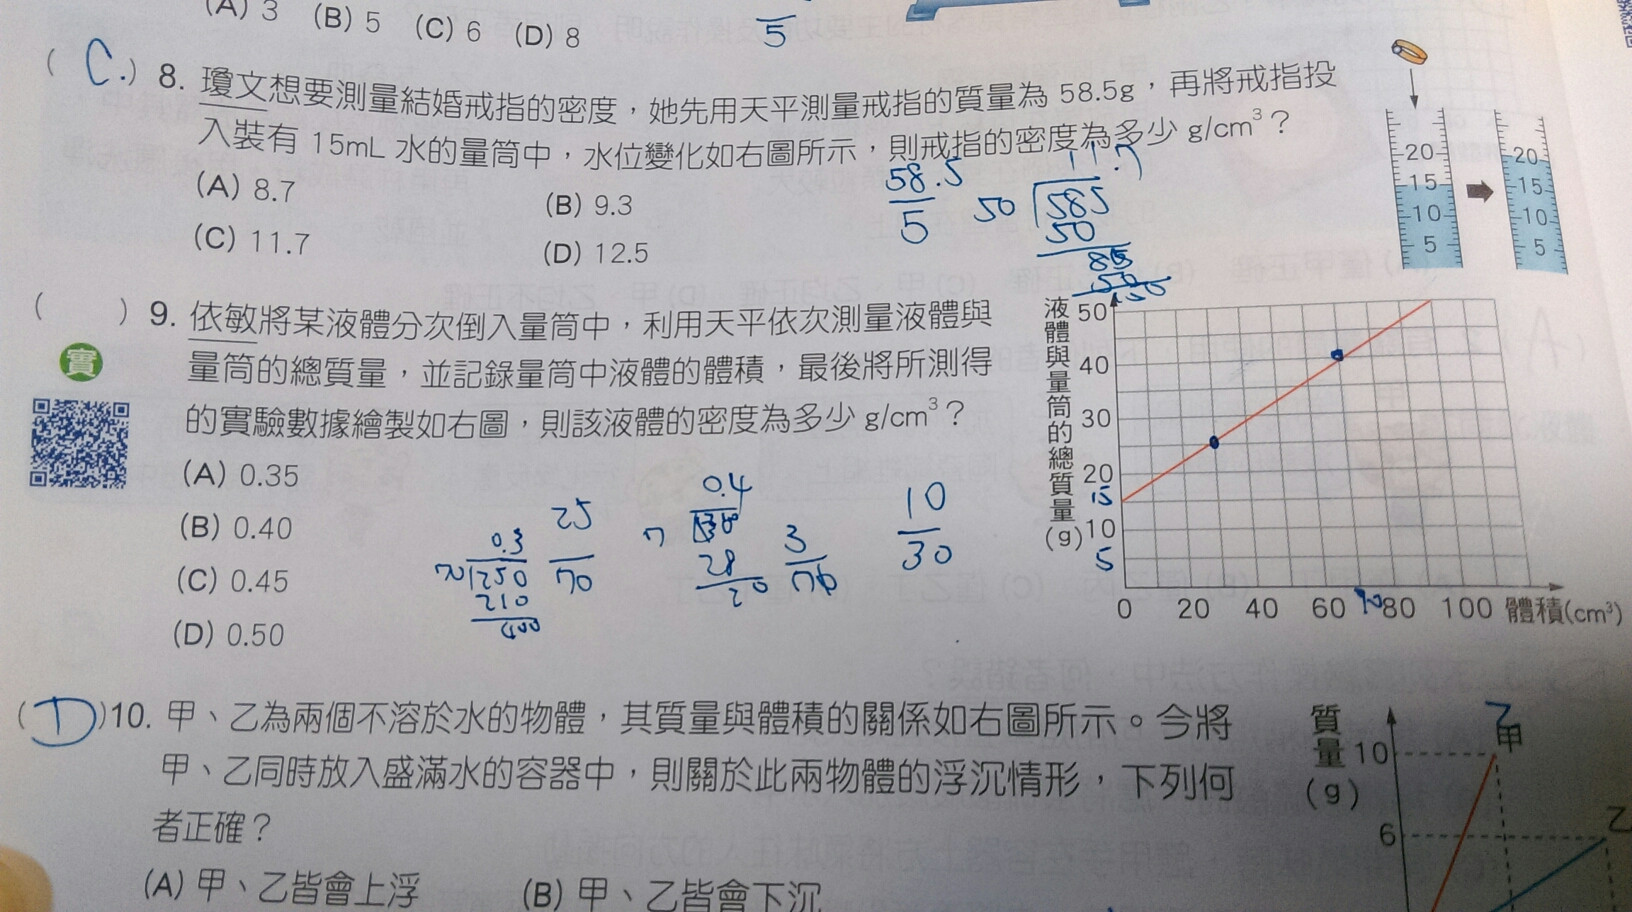 (A) 3 (B) 5 (C) 6 (D) 8
5
( C. ) 8. 瓊文想要測量結婚戒指的密度，她先用天平測量戒指的質量為 58.5g，再將戒指投
入裝有 15mL 水的量筒中，水位變化如右圖所示，則戒指的密度為多少 g/cm³？
(A) 8.7
(B) 9.3
(C) 11.7
(D) 12.5
58.5
5
11.7
50 585
50
85
50
20
15
10
5
20
15
10
5
( ) 9. 依敏將某液體分次倒入量筒中，利用天平依次測量液體與
實
量筒的總質量，並記錄量筒中液體的體積，最後將所測得
的實驗數據繪製如右圖，則該液體的密度為多少 g/cm³？
(A) 0.35
(B) 0.40
(C) 0.45
(D) 0.50
0.3
70 250
210
400
25
70
0.4
7
28
20
3
70
10
30
液體與量筒的總質量(g)
50
40
30
20
15
10
5
0 20 40 60 70 80 100 體積(cm³)
( D ) 10. 甲、乙為兩個不溶於水的物體，其質量與體積的關係如右圖所示。今將
甲、乙同時放入盛滿水的容器中，則關於此兩物體的浮沉情形，下列何
者正確？
(A) 甲、乙皆會上浮 (B) 甲、乙皆會下沉
質量(g)
10
6
乙
甲
乙